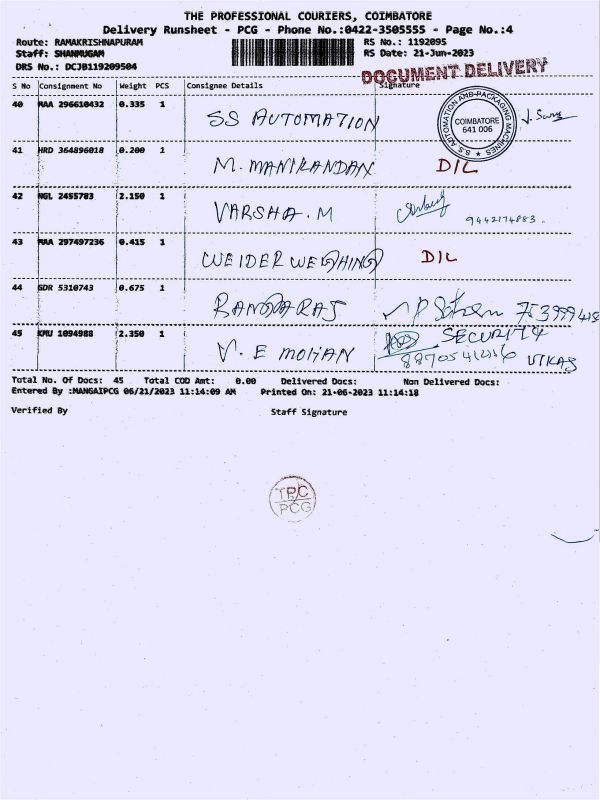 THE PROFESSIONAL COURIERS, COIMBATORE
Delivery Runsheet - PCG - Phone No.:0422-3505555 - Page No.:4
Route: RAMAKRISHNAPURAM RS No.: 1192095
Staff: SHANMUGAM RS Date: 21-Jun-2023
DRS No.: DCJB119209504
DOCUMENT DELIVERY
S No Consignment No Weight PCS Consignee Details Signature
40 MAA 296610432 0.335 1 SS AUTOMATION
S.S. AUTOMATION AND PACKAGING MACHINES
COIMBATORE
641 006
41 HRD 364896018 0.200 1 M. MANIKANDAN DIL
42 NGL 2455783 2.150 1 VARSHA. M 9442174883.
43 MAA 297497236 0.415 1 WEIDER WEIGHING DIL
44 SDR 5310743 0.675 1 RANGARAJ
45 KMU 1094988 2.350 1 V. E MOHAN SECURITY
VIKAS
Total No. Of Docs: 45 Total COD Amt: 0.00 Delivered Docs: Non Delivered Docs:
Entered By :MANGAIPCG 06/21/2023 11:14:09 AM Printed On: 21-06-2023 11:14:18
Verified By Staff Signature
TPC
PCG